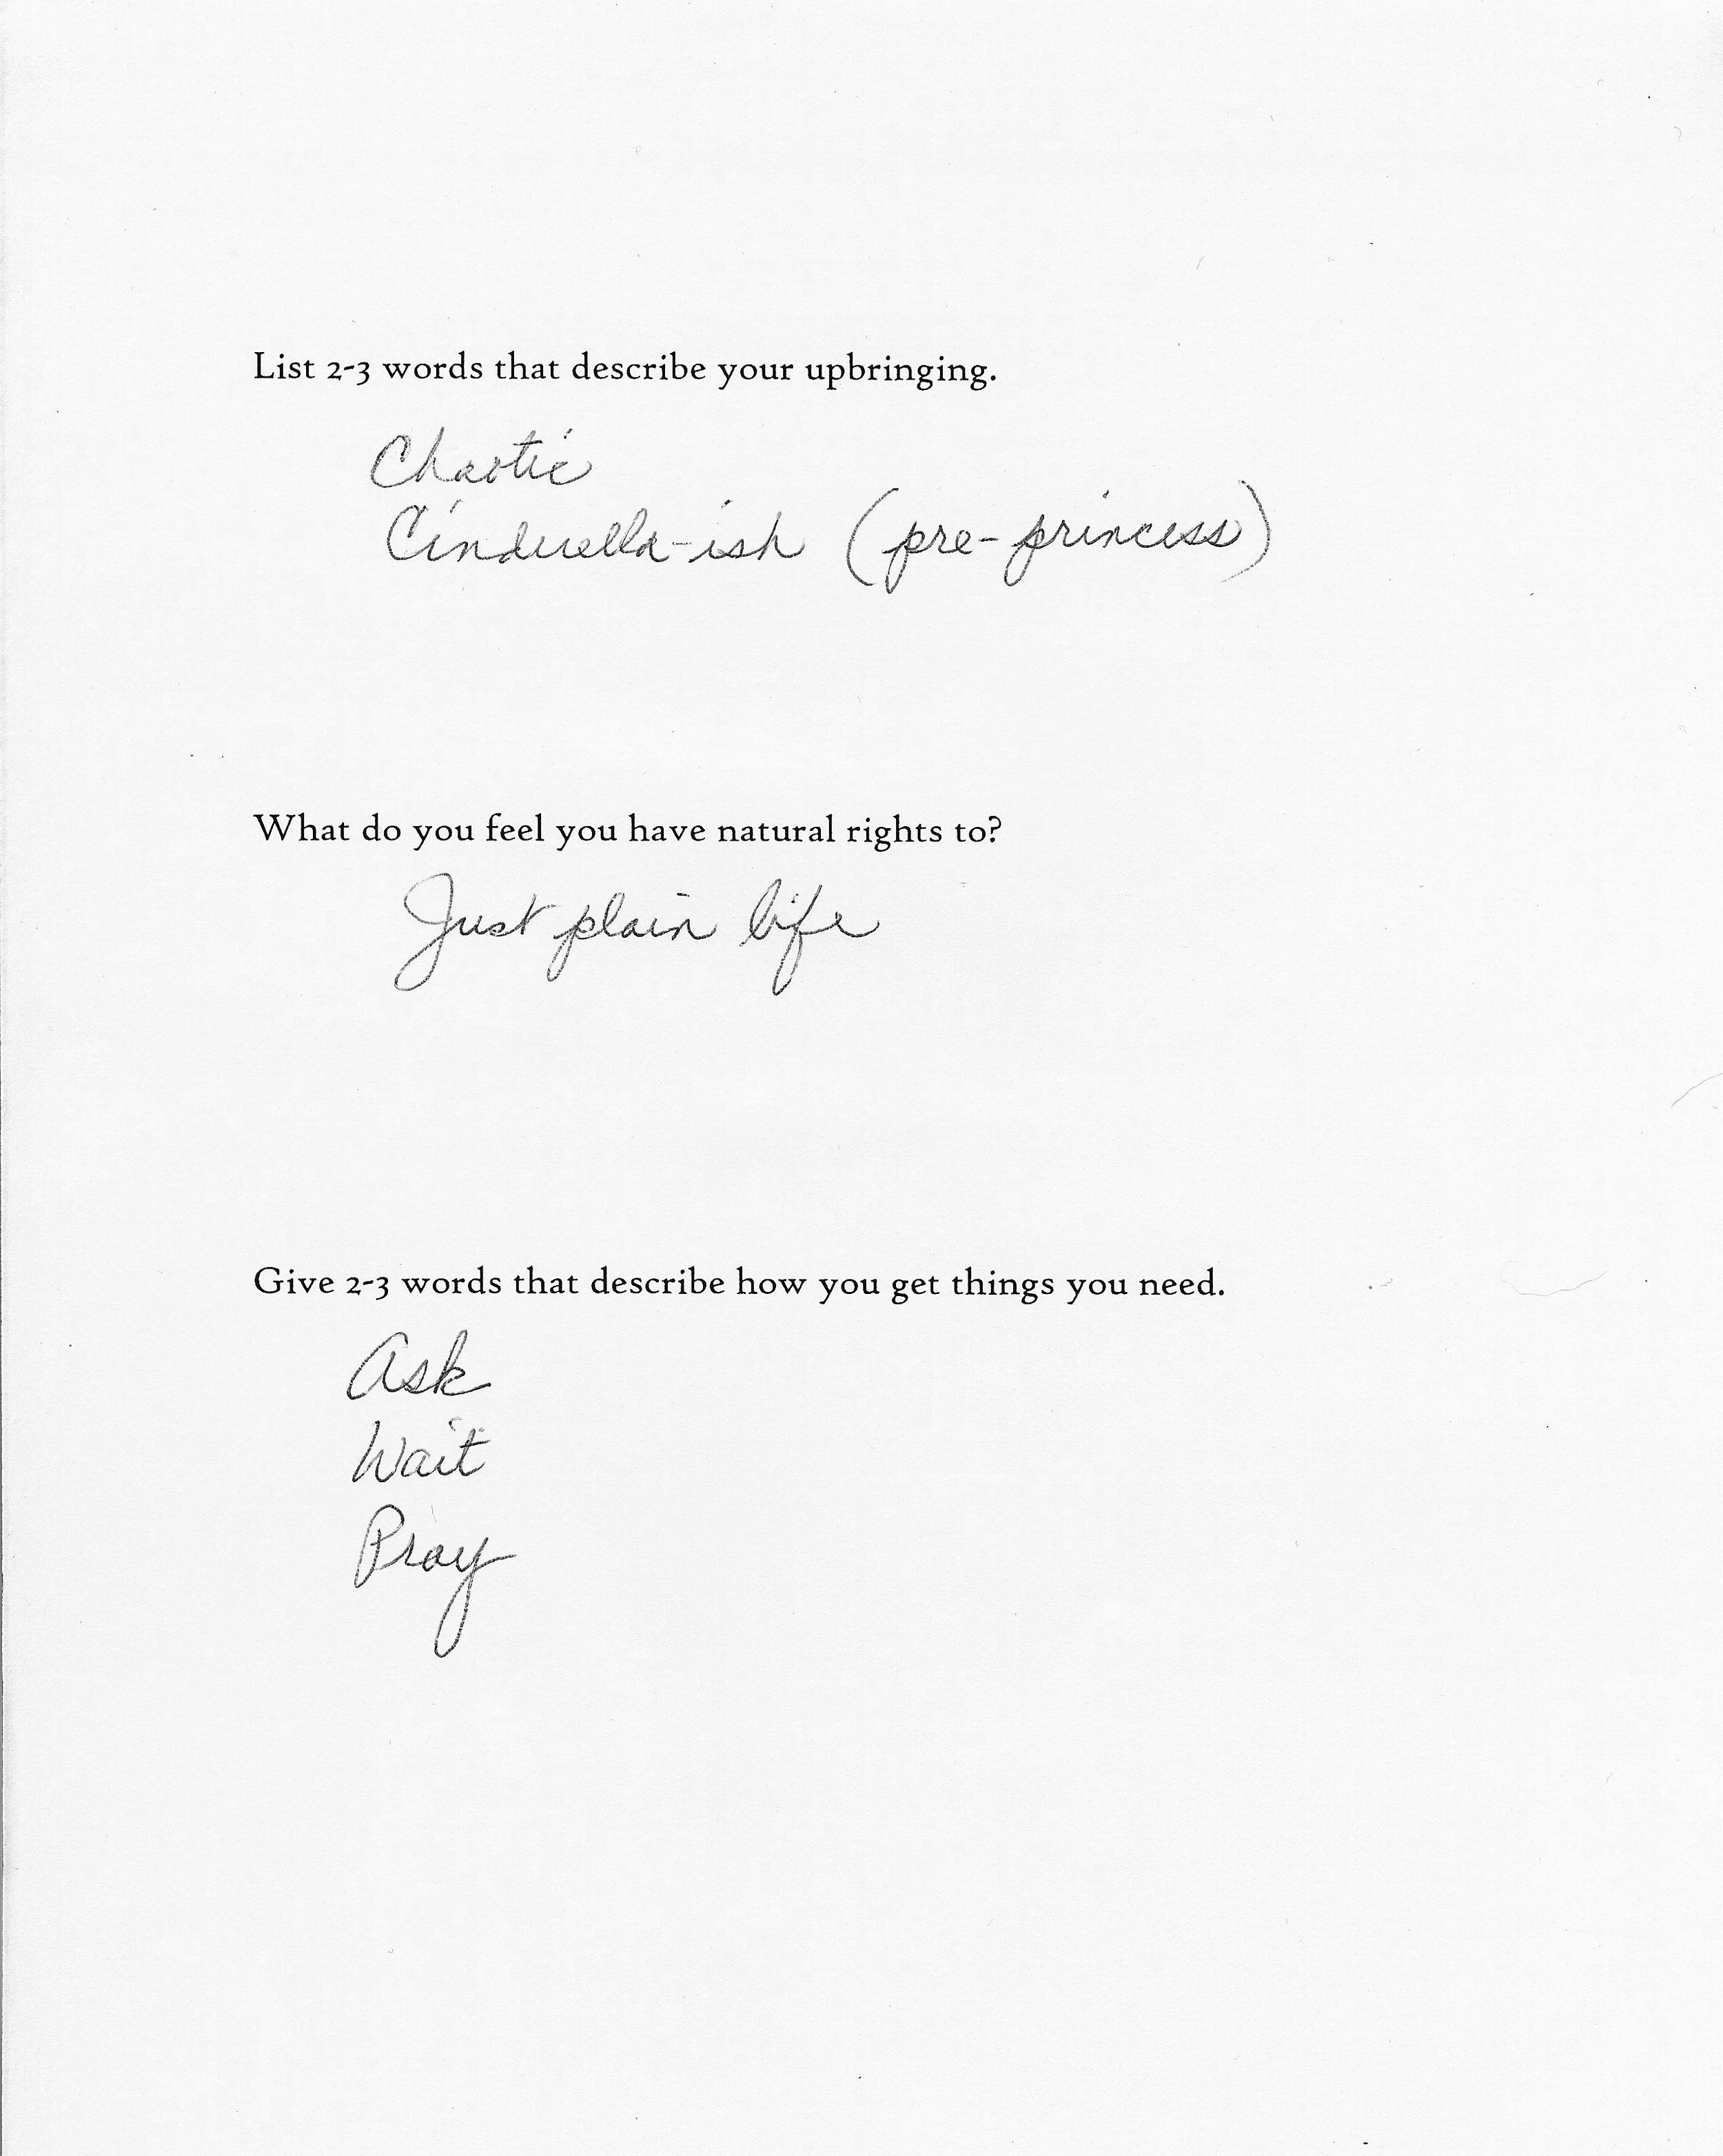 List 2-3 words that describe your upbringing.
Chaotic
Cinderella-ish (pre-princess)
What do you feel you have natural rights to?
Just plain life
Give 2-3 words that describe how you get things you need.
Ask
Wait
Pray